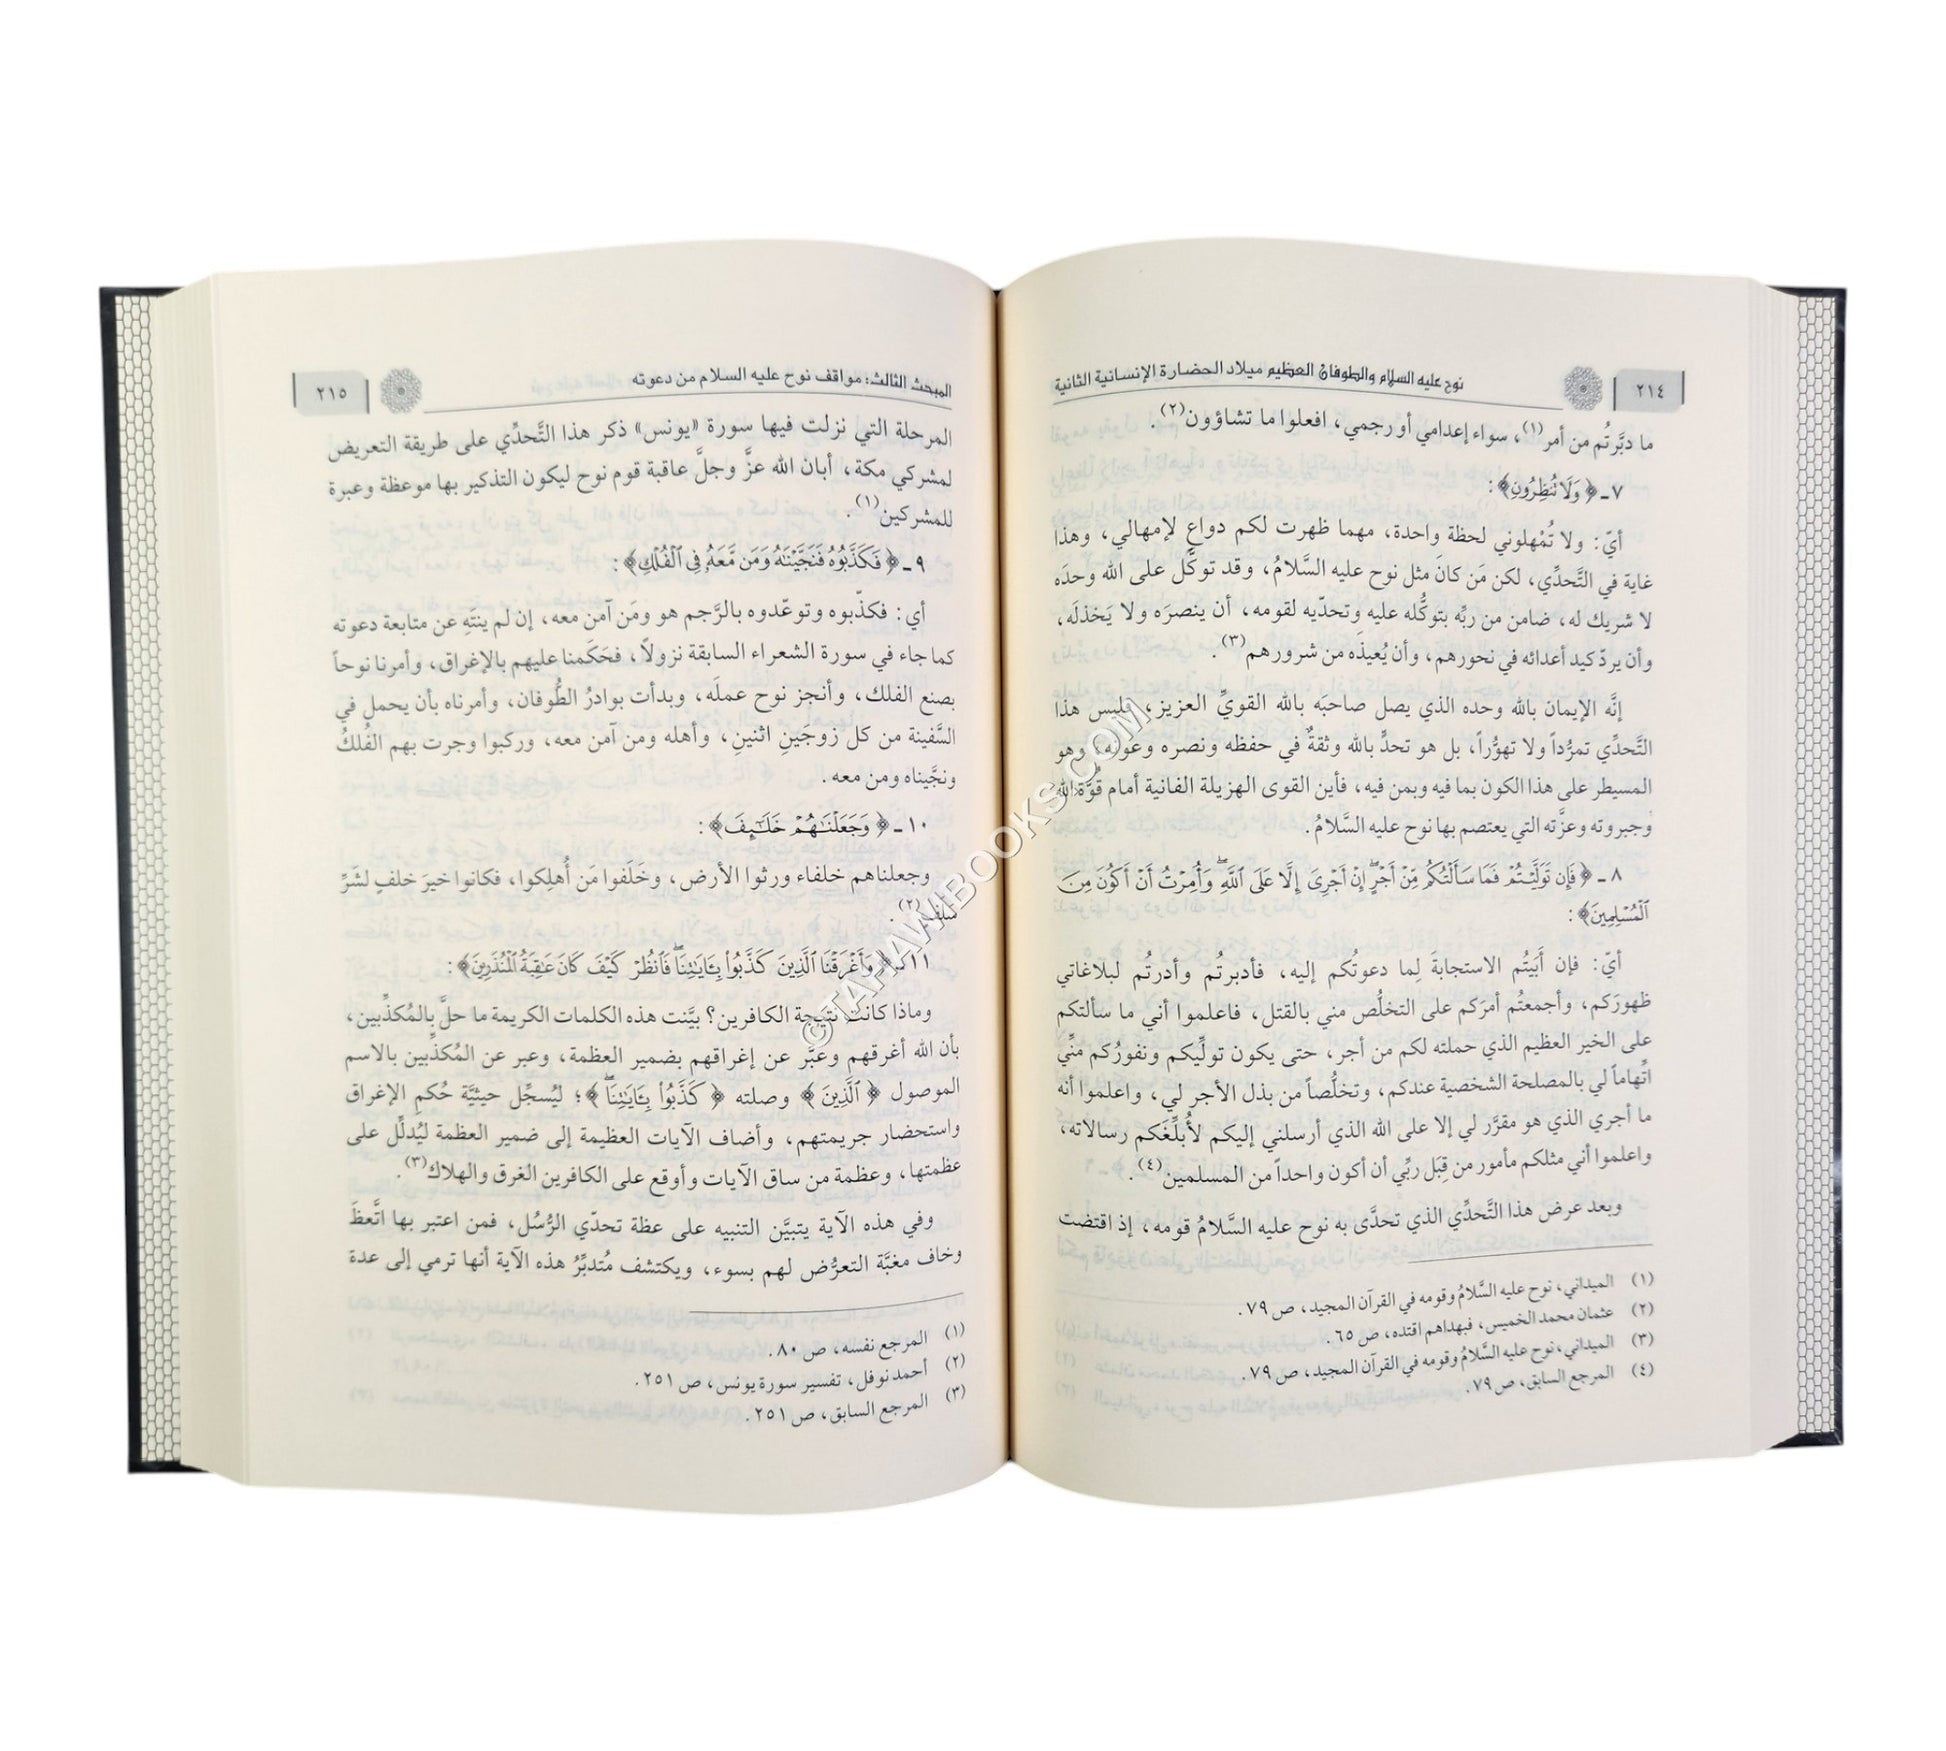 ٢١٤
نوح عليه السلام والطوفان العظيم ميلاد الحضارة الإنسانية الثانية
ما دبَّرتُم من أمر(١)، سواء إعدامي أو رجمي، افعلوا ما تشاؤون(٢).
٧ـ ﴿وَلَا تُنظِرُونِ﴾:
أيّ: ولا تُمْهلوني لحظة واحدة، مهما ظهرت لكم دواعٍ لإمهالي، وهذا
غاية في التَّحدِّي، لكن مَن كانَ مثل نوح عليه السَّلامُ، وقد توكَّل على الله وحدَه
لا شريك له، ضامن من ربِّه بتوكُّله عليه وتحدّيه لقومه، أن ينصرَه ولا يَخذلَه،
وأن يردّ كيد أعدائه في نحورهم، وأن يُعيذَه من شرورهم(٣).
إنَّه الإيمان بالله وحده الذي يصل صاحبَه بالله القويِّ العزيز، فليس هذا
التَّحدِّي تمرُّداً ولا تهوُّراً، بل هو تحدٍّ بالله وثقةٌ في حفظه ونصره وعونه، وهو
المسيطر على هذا الكون بما فيه وبمن فيه، فأين القوى الهزيلة الفانية أمام قوَّة الله
وجبروته وعزَّته التي يعتصم بها نوح عليه السَّلامُ.
٨ـ ﴿فَإِن تَوَلَّيْتُمْ فَمَا سَأَلْتُكُم مِّنْ أَجْرٍ إِنْ أَجْرِىَ إِلَّا عَلَى ٱللَّهِ وَأُمِرْتُ أَنْ أَكُونَ مِنَ
ٱلْمُسْلِمِينَ﴾:
أيّ: فإن أَبَيتُم الاستجابةَ لِما دعوتُكم إليه، فأدبرتُم وأدرتُم لبلاغاتي
ظهورَكم، وأجمعتُم أمرَكم على التخلُّص مني بالقتل، فاعلموا أني ما سألتكم
على الخير العظيم الذي حملته لكم من أجر، حتى يكون تولِّيكم ونفورُكم منِّي
اتِّهاماً لي بالمصلحة الشخصية عندكم، وتخلُّصاً من بذل الأجر لي، واعلموا أنه
ما أجري الذي هو مقرَّر لي إلا على الله الذي أرسلني إليكم لأُبلِّغَكم رسالاته،
واعلموا أني مثلكم مأمور من قِبَل ربِّي أن أكون واحداً من المسلمين(٤).
وبعد عرض هذا التَّحدِّي الذي تحدَّى به نوح عليه السَّلامُ قومه، إذ اقتضت
(١) الميداني، نوح عليه السَّلامُ وقومه في القرآن المجيد، ص ٧٩.
(٢) عثمان محمد الخميس، فبهداهم اقتده، ص ٦٥.
(٣) الميداني، نوح عليه السَّلامُ وقومه في القرآن المجيد، ص ٧٩.
(٤) المرجع السابق، ص ٧٩.
المبحث الثالث: مواقف نوح عليه السلام من دعوته
٢١٥
المرحلة التي نزلت فيها سورة «يونس» ذكر هذا التَّحدِّي على طريقة التعريض
لمشركي مكة، أبان الله عزَّ وجلَّ عاقبة قوم نوح ليكون التذكير بها موعظة وعبرة
للمشركين(١).
٩ـ ﴿فَكَذَّبُوهُ فَنَجَّيْنَٰهُ وَمَن مَّعَهُۥ فِى ٱلْفُلْكِ﴾:
أي: فكذّبوه وتوعّدوه بالرَّجم هو ومَن آمن معه، إن لم ينتَهِ عن متابعة دعوته
كما جاء في سورة الشعراء السابقة نزولاً، فحَكَمنا عليهم بالإغراق، وأمرنا نوحاً
بصنع الفلك، وأنجز نوح عملَه، وبدأت بوادرُ الطُّوفان، وأمرناه بأن يحمل في
السَّفينة من كل زوجَينِ اثنينِ، وأهله ومن آمن معه، وركبوا وجرت بهم الفُلكُ
ونجَّيناه ومن معه.
١٠ـ ﴿وَجَعَلْنَٰهُمْ خَلَٰٓئِفَ﴾:
وجعلناهم خلفاء ورثوا الأرض، وخَلَفوا مَن أُهلِكوا، فكانوا خيرَ خلفٍ لشَرِّ
سلف(٢).
١١ـ ﴿وَأَغْرَقْنَا ٱلَّذِينَ كَذَّبُوا۟ بِـَٔايَٰتِنَا فَٱنظُرْ كَيْفَ كَانَ عَٰقِبَةُ ٱلْمُنذَرِينَ﴾:
وماذا كانت نتيجة الكافرين؟ بيَّنت هذه الكلمات الكريمة ما حلَّ بالمُكذِّبين،
بأن الله أغرقهم وعبَّر عن إغراقهم بضمير العظمة، وعبر عن المُكذِّبين بالاسم
الموصول ﴿ٱلَّذِينَ﴾ وصلته ﴿كَذَّبُوا۟ بِـَٔايَٰتِنَا﴾؛ ليُسجِّل حيثيَّة حُكمِ الإغراق
واستحضار جريمتهم، وأضاف الآيات العظيمة إلى ضمير العظمة ليُدلِّل على
عظمتها، وعظمة من ساق الآيات وأوقع على الكافرين الغرق والهلاك(٣).
وفي هذه الآية يتبيَّن التنبيه على عظة تحدّي الرُّسُل، فمن اعتبر بها اتَّعظَ
وخاف مغبَّة التعرُّض لهم بسوء، ويكتشف مُتدبِّرُ هذه الآية أنها ترمي إلى عدة
(١) المرجع نفسه، ص ٨٠.
(٢) أحمد نوفل، تفسير سورة يونس، ص ٢٥١.
(٣) المرجع السابق، ص ٢٥١.
©TAHAWIBOOKS.COM